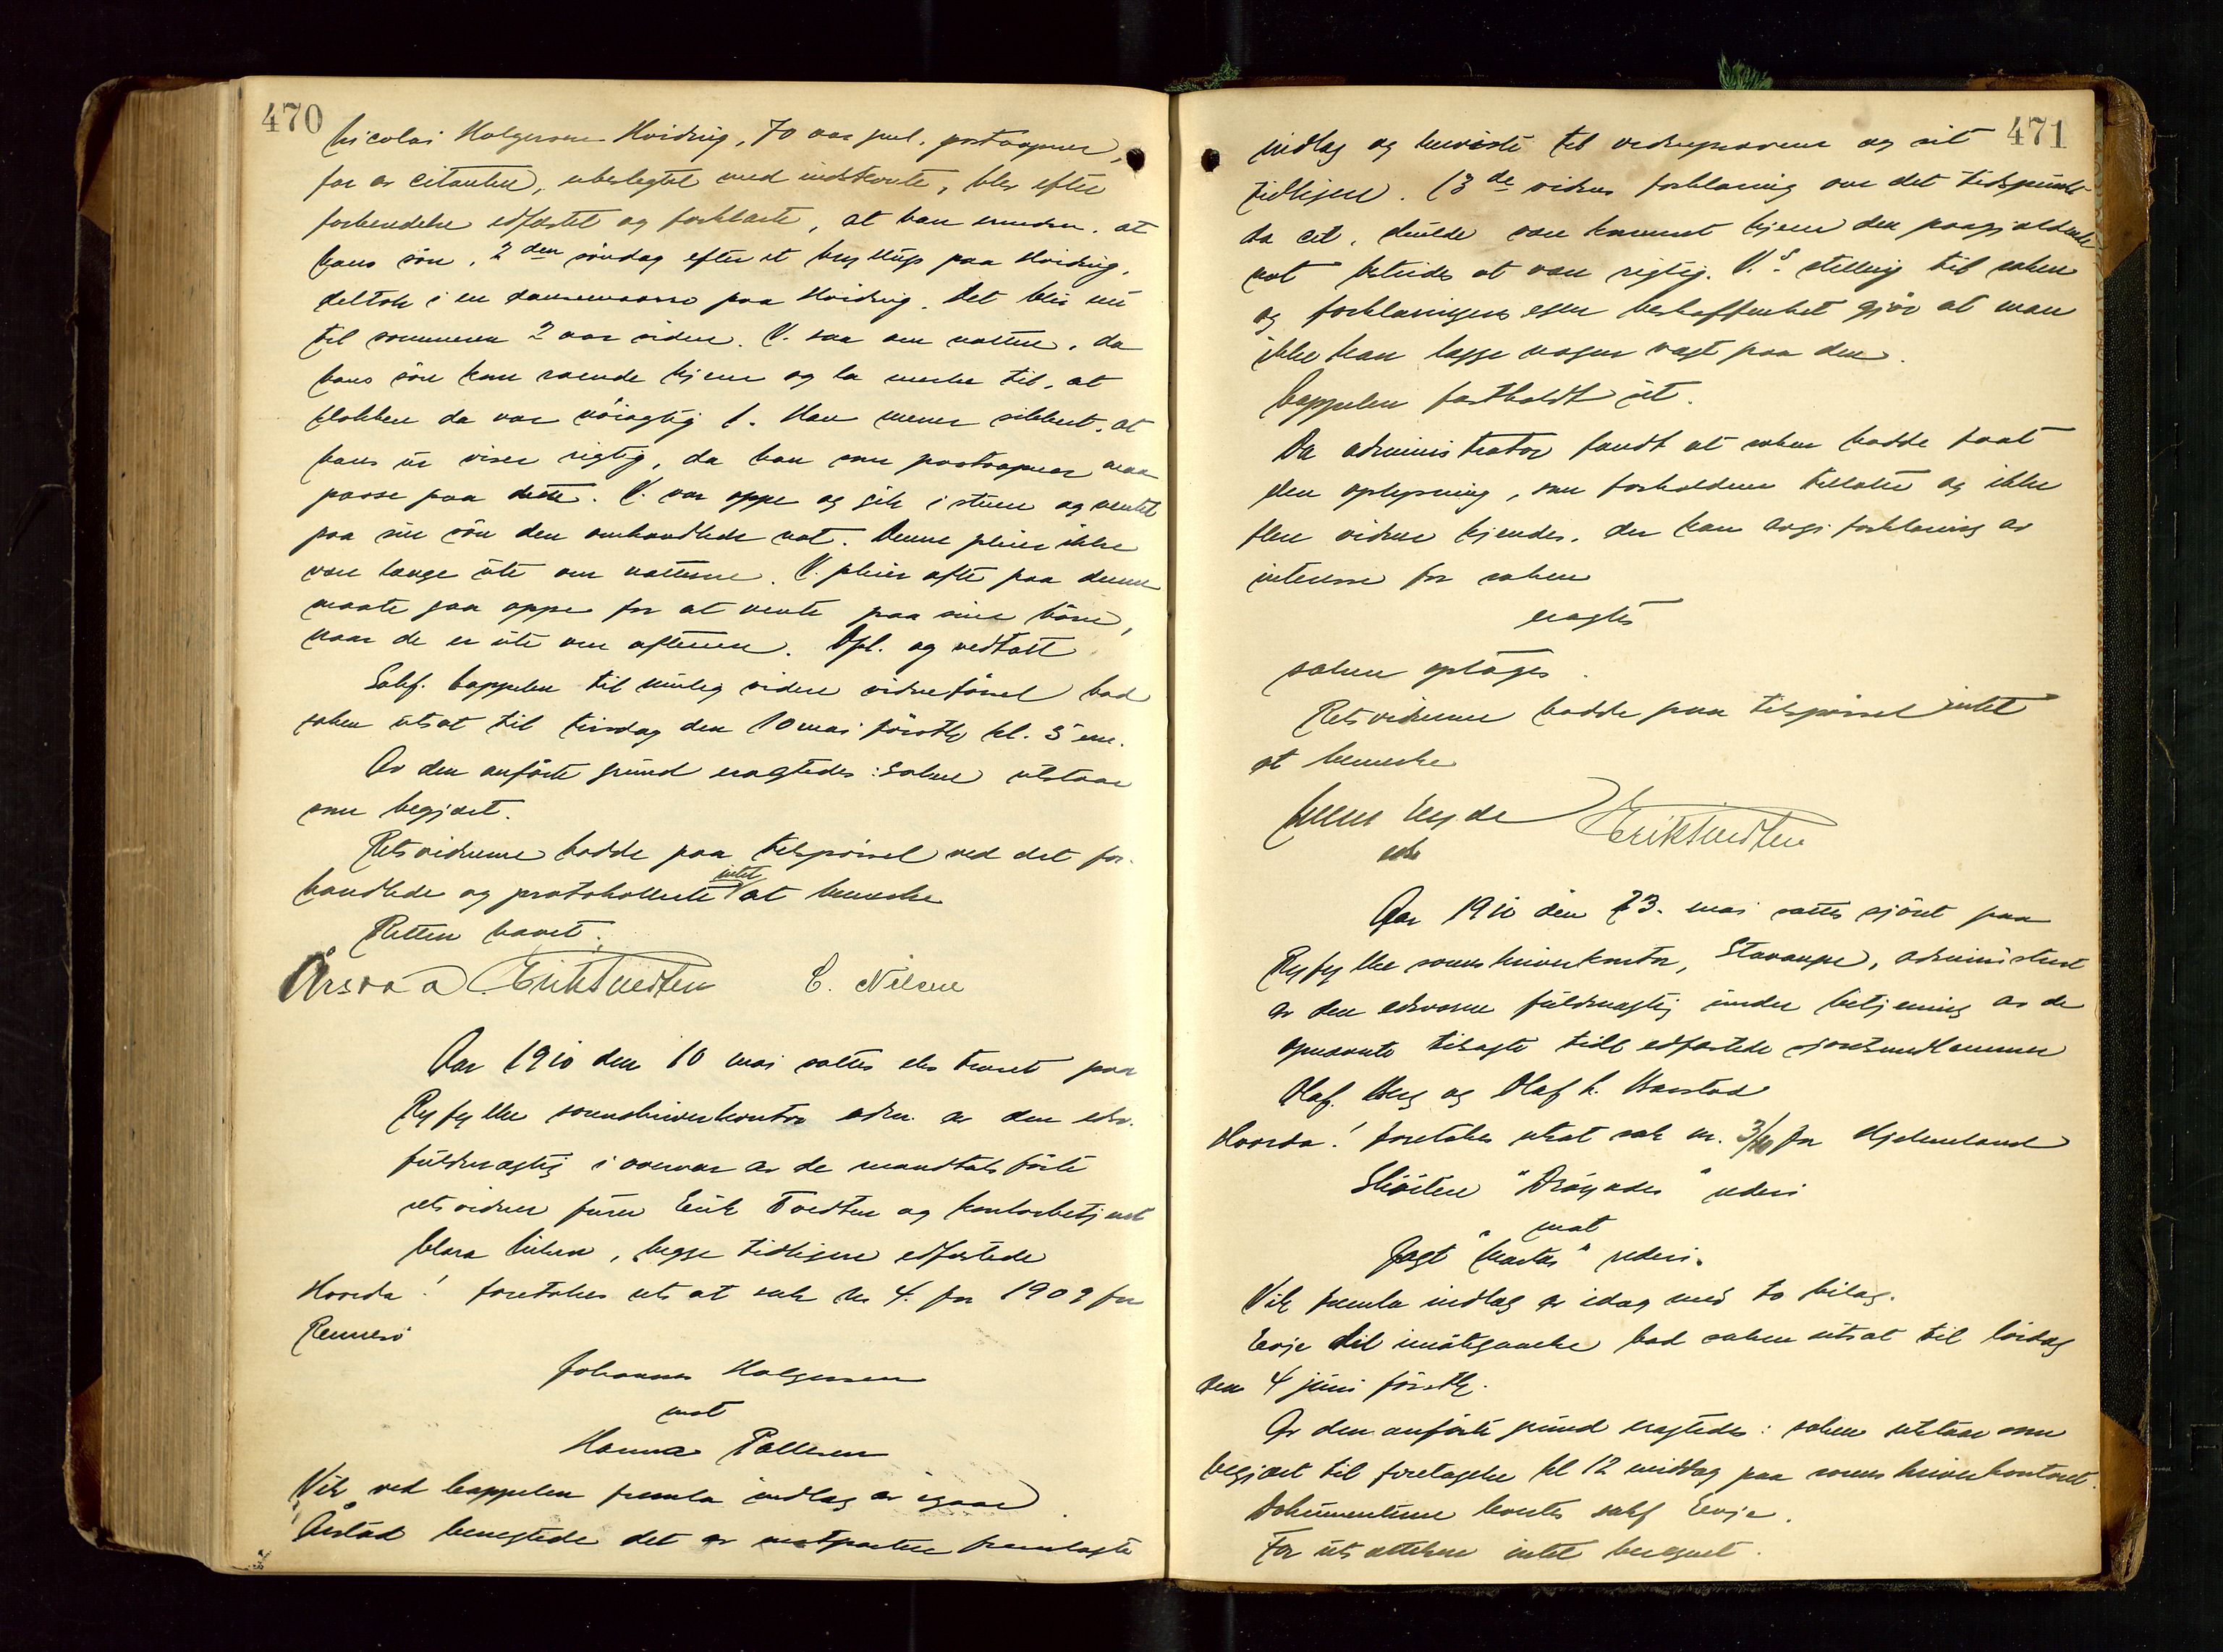 470
Nicolai Holgersen Hvidvig, 70 aar gml. postaapner,
far av citanten, ubeslegtet med indstevnte, blev efter
forhendelse edfæstet og forklarte, at han mindes, at
hans søn, 2den søndag efter et bryllup paa Hvidvig,
deltok i en dansemoro paa Hvidvig. Det blir nu
til sommeren 2 aar siden. V. saa om natten, da
hans søn kom roende hjem og la merke til, at
klokken da var nøiagtig 1. Han mener sikkert, at
hans ur viser rigtig, da han som postaapner maa
passe paa dette. V. var oppe og gik i stuen og ventet
paa sin søn den omhandlede nat. Denne pleier ikke
være lange ute om natterne. V. pleier ofte paa denne
maate gaa oppe for at vente paa sine børn,
naar de er ute om aftenen. Opl. og vedtatt
Sakf. Cappelen til mulig videre vidneførsel bad
saken utsat til tirsdag den 10 mai førstk kl. 5 em.
Av den anførte grund eragtedes: Saken utstaar
som begjært.
Retsvidnerne hadde paa tilspørsel ved det for-
handlede og protokollerte intet at bemerke
Retten hævet.
Årstad Erik Tvedten C. Nilsen
Aar 1910 den 10 mai sattes ekstraret paa
Ryfylke sorenskriverkontor adm. av den edsv.
fuldmægtig i overvær av de mandtalsførte
retsvidner furer Erik Tvedten og kontorbetjent
Clara Nilsen, begge tidligere edfæstede
Hvorda! foretokes utsat sak nr 4. for 1909 fra
Rennesø
Johannes Holgersen
mot
Hanna Pallesen
Vik ved Cappelen fremla indlæg av igaar
Årstad benegtede det av motparten fremlagte
471
indlæg og henviste til vidneprovene og sit
tidligere. 13de vidnes forklaring om det tidspunkt
da cit. skulde være kommet hjem den paagjældende
nat bestrides at være rigtig. V.s stilling til saken
og forklaringens egen beskaffenhet gjør at man
ikke kan lægge nogen vægt paa den.
Cappelen fastholdt sit.
Da administrator fandt at saken hadde faat
den oplysning, som forholdene tillater og ikke
flere vidner kjendes, der kan avgi forklaring av
interesse for saken
eragtes
saken optages.
Retsvidnerne hadde paa tilspørsel intet
at bemerke
Erik Tvedten
Aar 1910 den 23. mai sattes sjøret paa
Ryfylke sorenskriverkontor, Stavanger, administrert
av den edsvorne fuldmægtig under betjening av de
opnævnte tilsagte tidl edfæstede sjøretsmedlemmer
Olaf Berg og Olaf L. Harstad
Hvorda! foretokes utsat sak nr. 3/10 fra Hjelmeland
Skøiten "Drøgades" rederi
mot
Jagt "Martas" rederi.
Vik fremla indlæg av idag med to bilag.
Evje til imøtegaaelse bad saken utsat til lørdag
den 4 juni førstk.
Av den anførte grund eragtedes: saken utstaar som
begjært til foretagelse kl 12 middag paa sorenskriverkontoret.
Dokumenterne laantes sakf Evje.
For utsættelsen intet beregnet.